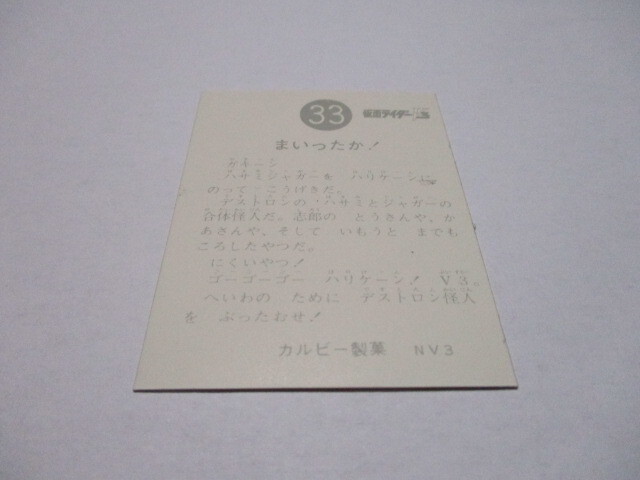 33 仮面ライダーV3
まいったか！
ハサミジャガーを ハリケーンに
のって こうげきだ。
デストロンの ハサミとジャガーの
合体怪人だ。志郎の とうさんや、か
あさんや、そして いもうと までも
ころしたやつだ。
にくいやつ！
ゴーゴーゴー ハリケーン！ V3。
へいわの ために デストロン怪人
を ぶったおせ！
カルビー製菓 NV3